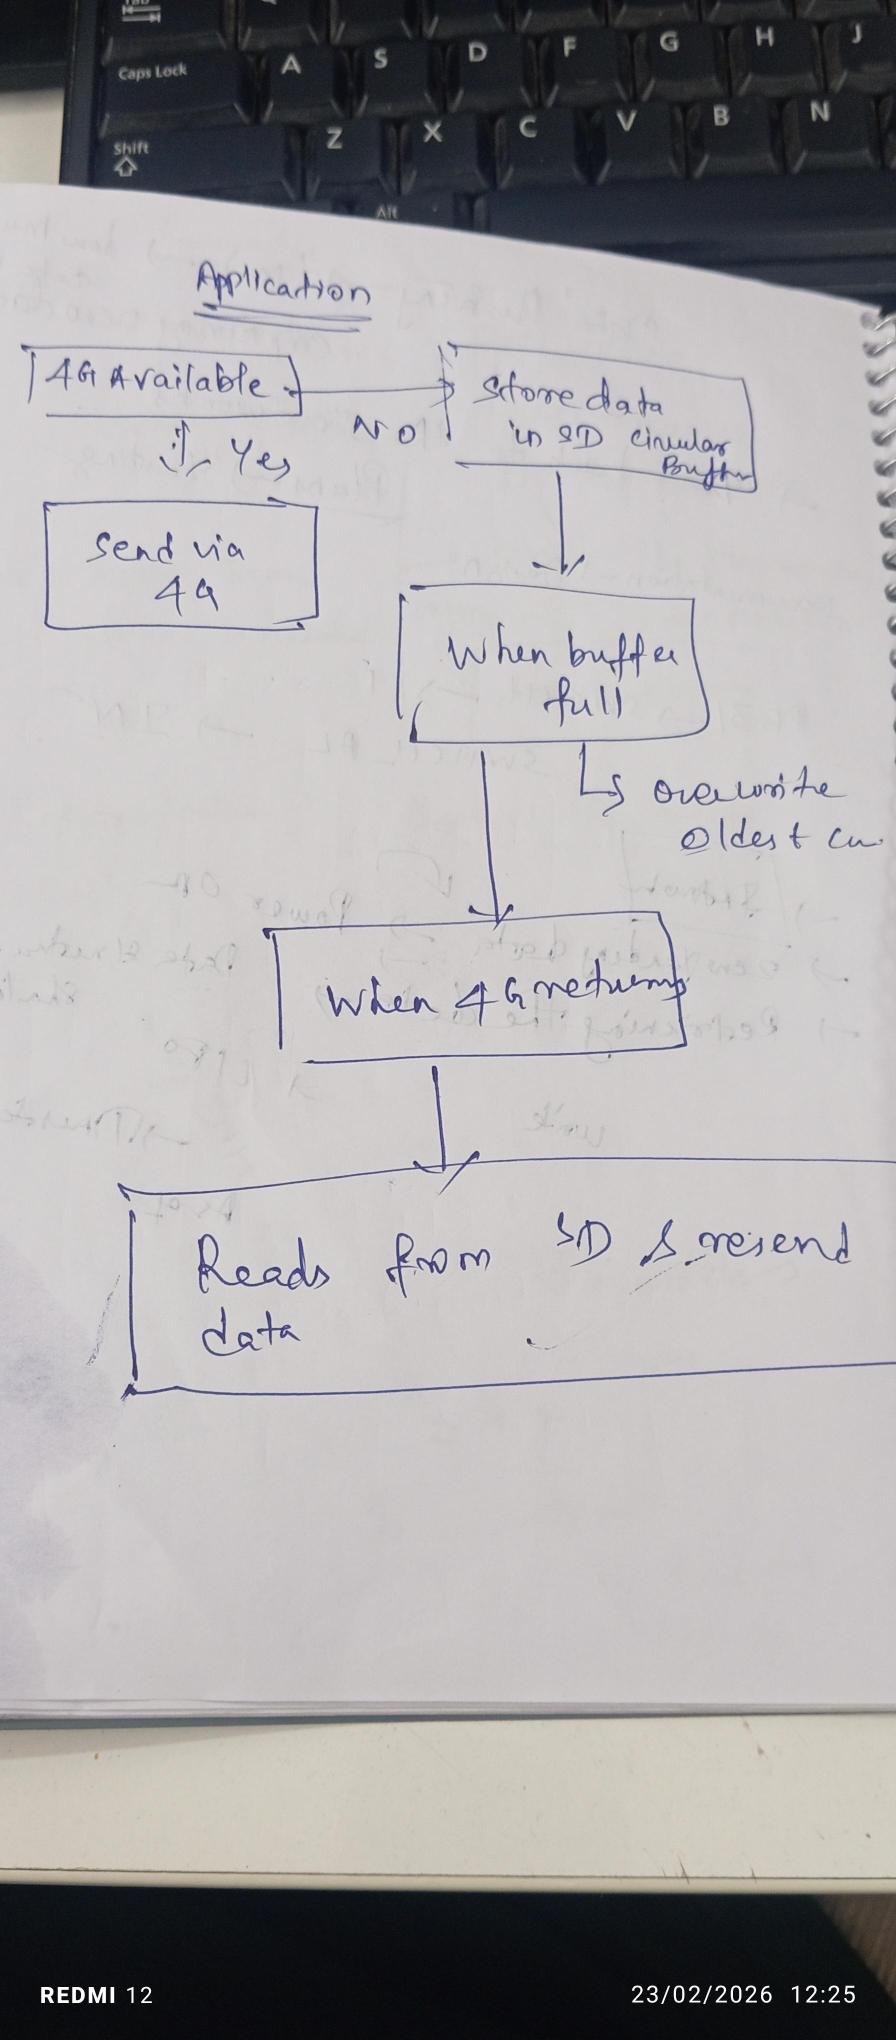 Caps Lock
A S D F G H J
Shift
Z X C V B N
Alt
Application
4G Available
NO
Store data
in SD circular
Buffer
Yes
Send via
4G
When buffer
full
overwrite
oldest
When 4G returns
Reads from SD & resend
data
REDMI 12
23/02/2026 12:25